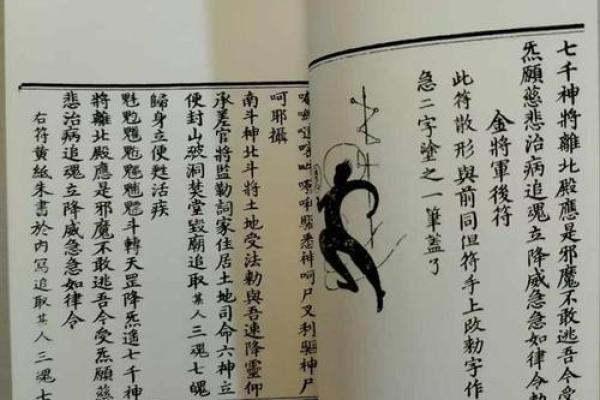 七千神將離北殿應是邪魔不敢逃吾今受
炁願慈悲治病追魂立降威急急如律令
金將軍後符
此符散形與前同但符手上改勅字作
急二字塗之一筆蓋了
驅悉神呵尸叉利驅神尸
呵耶攝
南斗神北斗將土地受法勅與吾速降靈仰
承差官將監勤詞家住居土地司命六神立
便封山破洞焚堂毀廟追取某人三魂七魄
歸身立便甦活疾
魁斗轉天罡降炁遙七千神
將離北殿應是邪魔不敢逃吾今受炁願慈
悲治病追魂立降威急急如律令
右符黃紙朱書於內寫追取某人三魂七